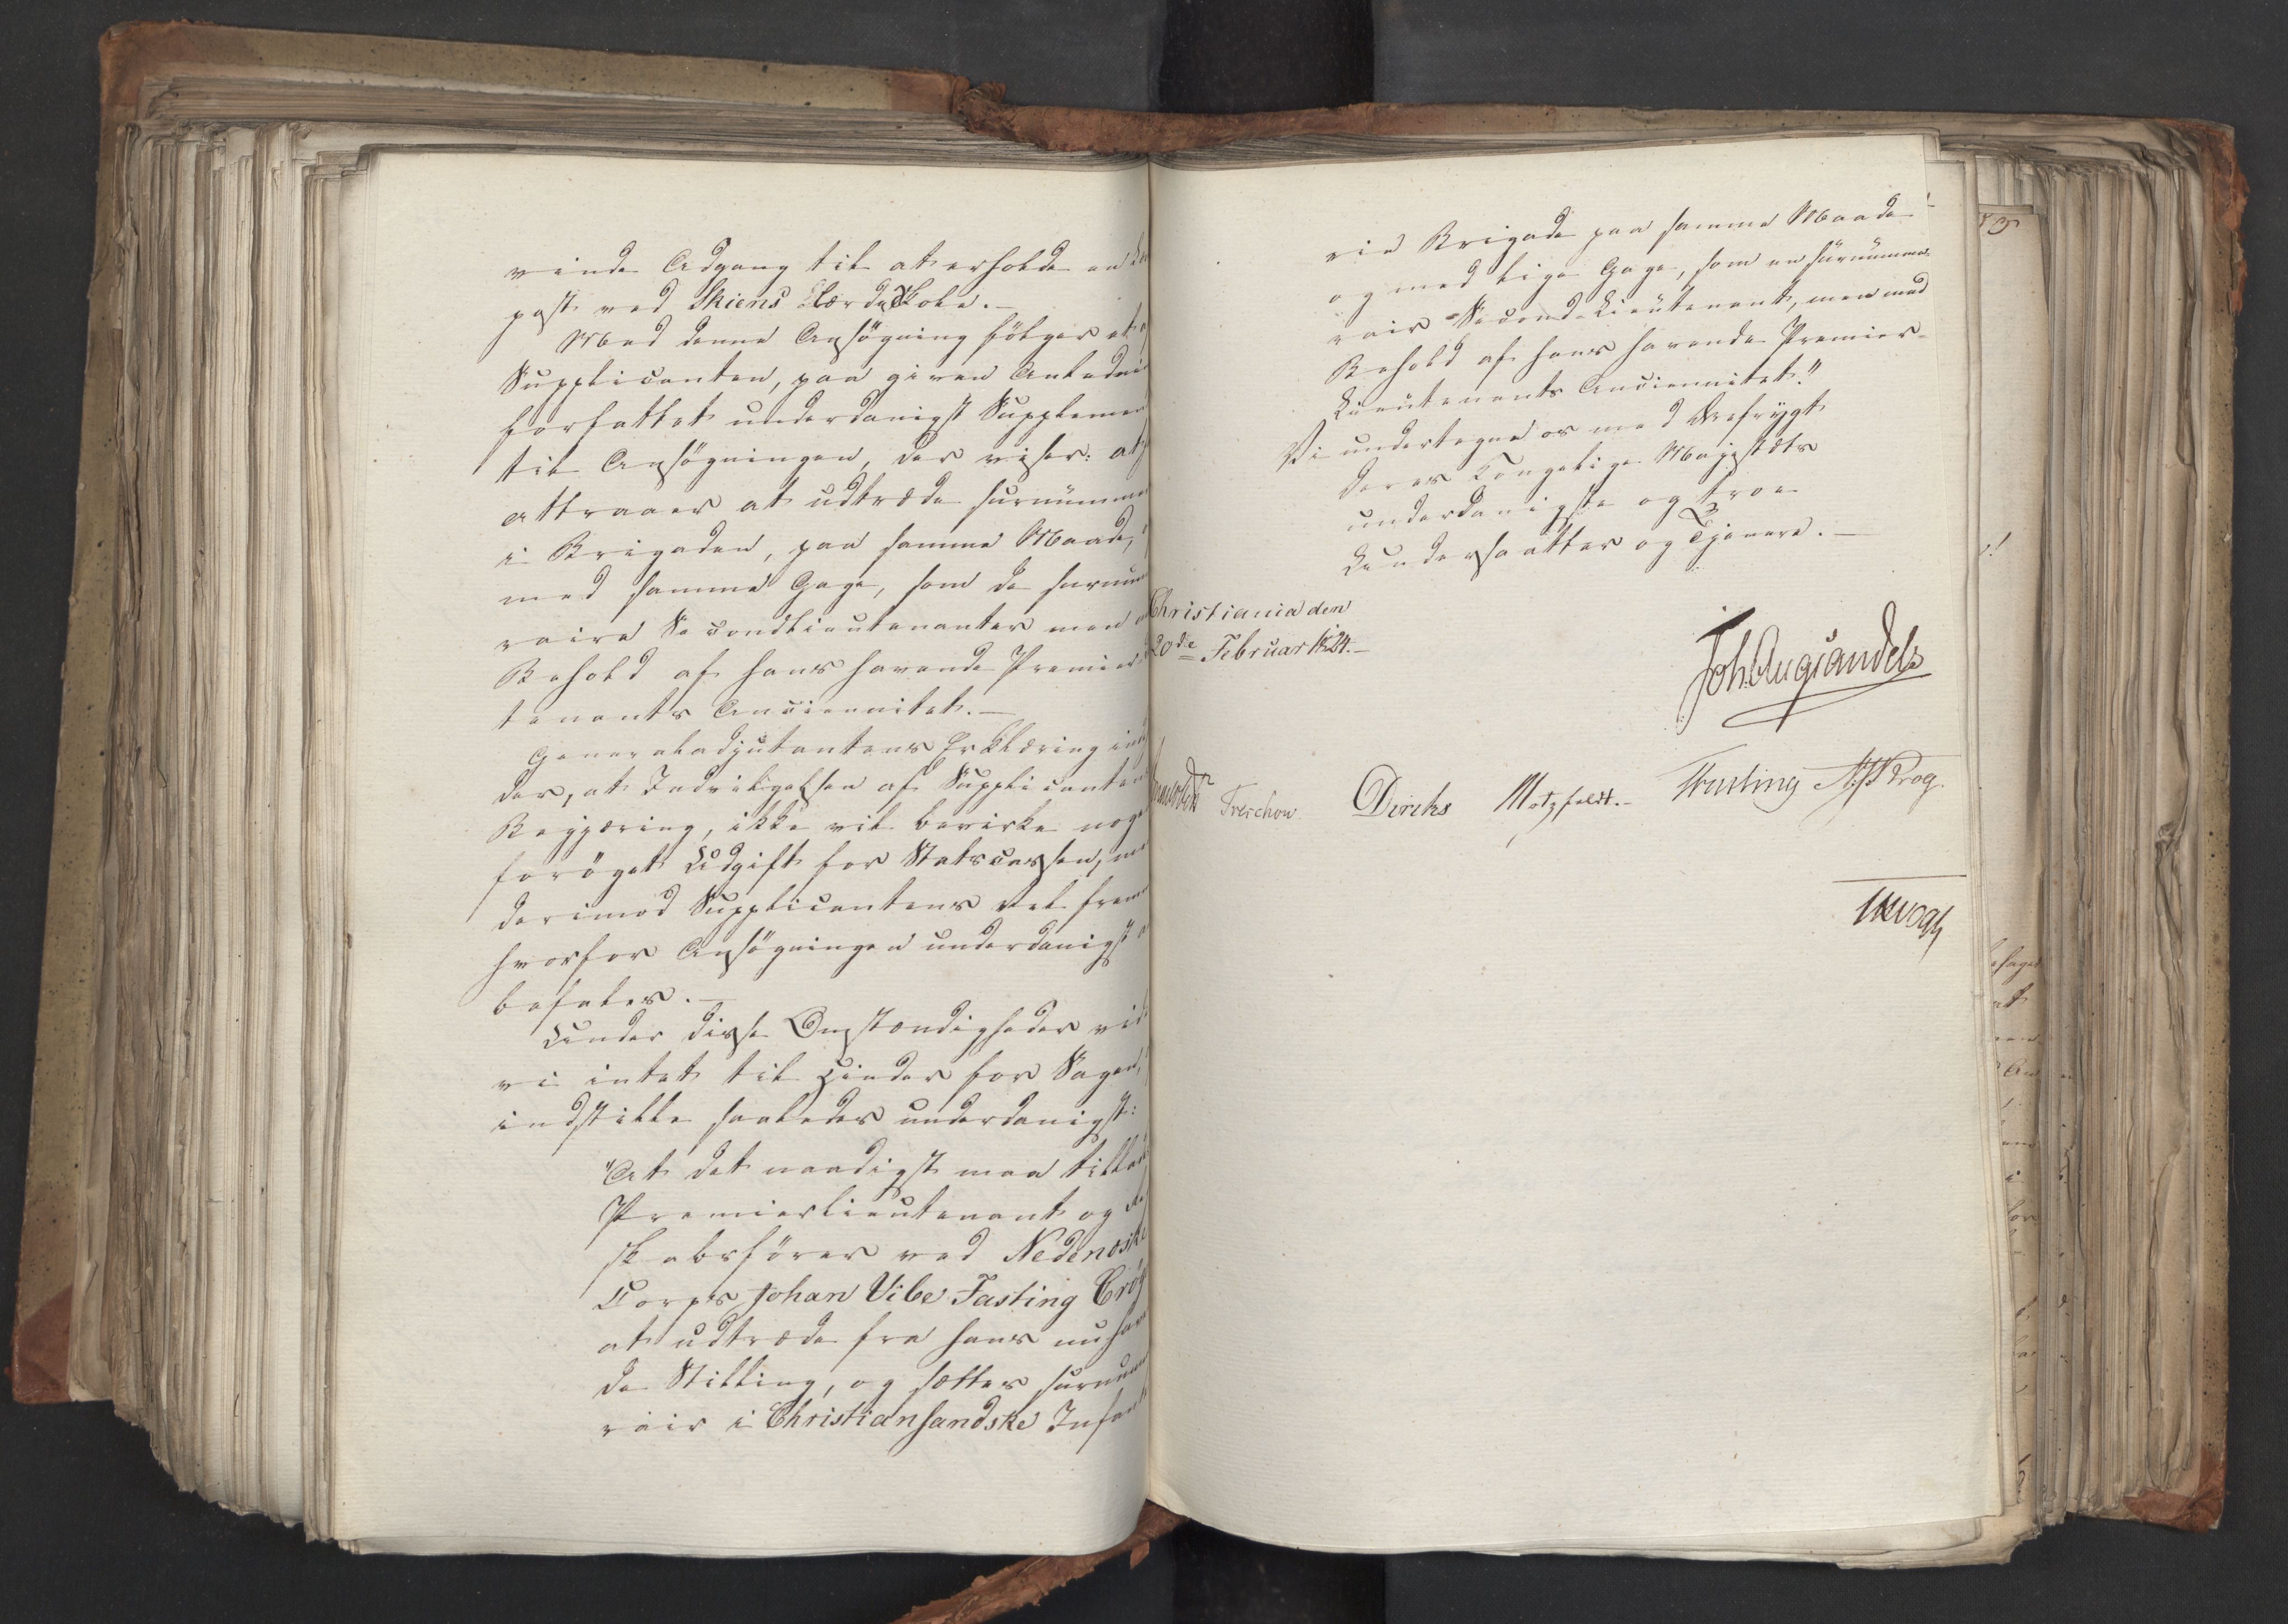 vinde Adgang til at erholde en
post ved Skiens Lærde Skole.—
Med denne Ansøgning følger et af
Supplicanten, paa given Anledni
forfattet underdanigst Supplemen
til Ansøgningen, der viser: at
attraaer at udtræde surnumme
i Brigaden, paa samme Maade,
med samme Gage, som de surnum
raire Secondlieutenanter men
Behold af hans havende Premier
tenants Anciennitet.—
Generaladjutantens Erklæring in
der, at Indvilgelsen af Supplicanten
Begjæring, ikke vil bevirke nog
forøget Udgift for Statscassen, me
derimod Supplicantens Vel frem
hvorfor Ansøgningen underdanigst
befales.—
Under disse Omstændigheder vid
vi intet til Hinder for Sagen,
indstille saaledes underdanigst:
"At det naadigst maa tillad
Premierlieutenant og
skabsfører ved Nedenæske
Corps Johan Vibe Fasting Crøg
at udtræde fra hans nuhav
de Stilling, og sættes surnum
rair i Christiansandske Infant
rie Brigade paa samme Maade
og med lige Gage, som en surnumme-
rair Second-Lieutenant, men med
Behold af hans havende Premier-
Lieutenants Anciennitet."
Vi undertegne os med Ærefrygt
Deres Kongelige Majestæts
underdanigste og troe
Undersaatter og Tjenere.—
Christiania den
20de Februar 1824.—
Joh. Aug. Sandels
Sommerhielm Treschow. Diriks Motzfeldt.— Fasting N. J. Krog.
Vogt